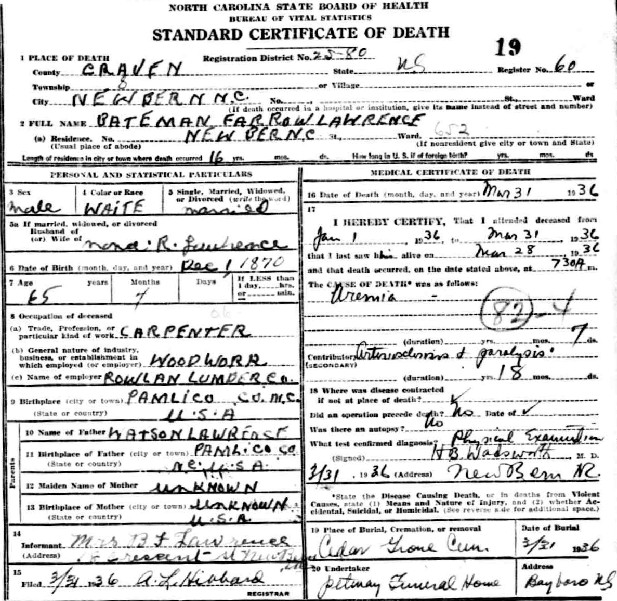 NORTH CAROLINA STATE BOARD OF HEALTH
BUREAU OF VITAL STATISTICS
STANDARD CERTIFICATE OF DEATH
19
1 PLACE OF DEATH Registration District No. 25-80
County CRAVEN State Register No. 60
Township 8 or Village or
City NEW BERN N.C. No. St., Ward
(If death occurred in a hospital or institution, give its name instead of street and number)
2 FULL NAME BATEMAN FARROW LAWRENCE
(a) Residence. No. NEW BERN C St., Ward. 652
(Usual place of abode) (If nonresident give city or town and State)
Length of residence in city or town where death occurred 16 yrs. mos. ds. How long in U. S. if of foreign birth? yrs. mos. ds.
PERSONAL AND STATISTICAL PARTICULARS
3 Sex 4 Color or Race 5 Single, Married, Widowed, or Divorced (write the word)
male WAITE married
5a If married, widowed, or divorced
Husband of
(or) Wife of R. Lawrence
6 Date of Birth (month, day, and year) Dec 1, 1870
7 Age years Months Days If LESS than 1 day, hrs. or min.
65 7
8 Occupation of deceased
(a) Trade, Profession, or particular kind of work CARPENTER
(b) General nature of industry, business, or establishment in which employed (or employer) WOOD WORK
(c) Name of employer ROWLAN LUMBER Co.
9 Birthplace (city or town) PAMLICO CO. N.C.
(State or country) U.S.A
Parents
10 Name of Father WATSON LAWRENCE
11 Birthplace of Father (city or town) PAMLICO CO
(State or country) NC U.S.A
12 Maiden Name of Mother UNKNOWN
13 Birthplace of Mother (city or town) UNKNOWN
(State or country) U.S.A
14
Informant Mrs B F Lawrence
(Address)
15
Filed 3/31 1936 A. L. Hibbard
REGISTRAR
MEDICAL CERTIFICATE OF DEATH
16 Date of Death (month, day, and year) Mar 31 1936
17
I HEREBY CERTIFY, That I attended deceased from
Jan 1 1936 to Mar 31 1936
that I last saw him alive on Mar 28 1936
and that death occurred, on the date stated above, at 730A m.
The CAUSE OF DEATH* was as follows:
Uremia
82-4
(duration) yrs. mos. 7 ds.
Contributory Arteriosclerosis & paralysis
(SECONDARY)
(duration) yrs. 18 mos. ds.
18 Where was disease contracted
if not at place of death?
Did an operation precede death? No Date of
Was there an autopsy? No
What test confirmed diagnosis? Physical Examination
(Signed) H.B. Wadsworth M. D.
3/31 1936 (Address) New Bern NC
*State the Disease Causing Death, or in deaths from Violent Causes, state (1) Means and Nature of Injury, and (2) whether Accidental, Suicidal, or Homicidal. (See reverse side for additional space.)
19 Place of Burial, Cremation, or removal Date of Burial
Cedar Grove Cem. 3/31 1936
20 Undertaker Address
Funeral Home Bayboro NC